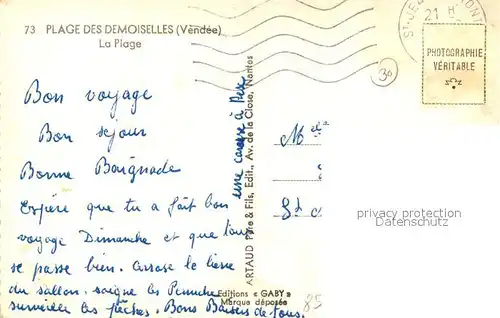 73 PLAGE DES DEMOISELLES (Vendée)
La Plage
21 H
PHOTOGRAPHIE
VÉRITABLE
30
Bon voyage
Bon séjour
Bonne Baignade
Espère que tu a fait bon
voyage Dimanche et que tout
se passe bien. Arrose le lierre
du sallon. soigne les
surveille les pêches. Bons Baisers de tous.
une caresse à
ARTAUD Père & Fils, Edit., Av. de la Close, Nantes
Editions « GABY »
Marque déposée
85
privacy protection
Datenschutz